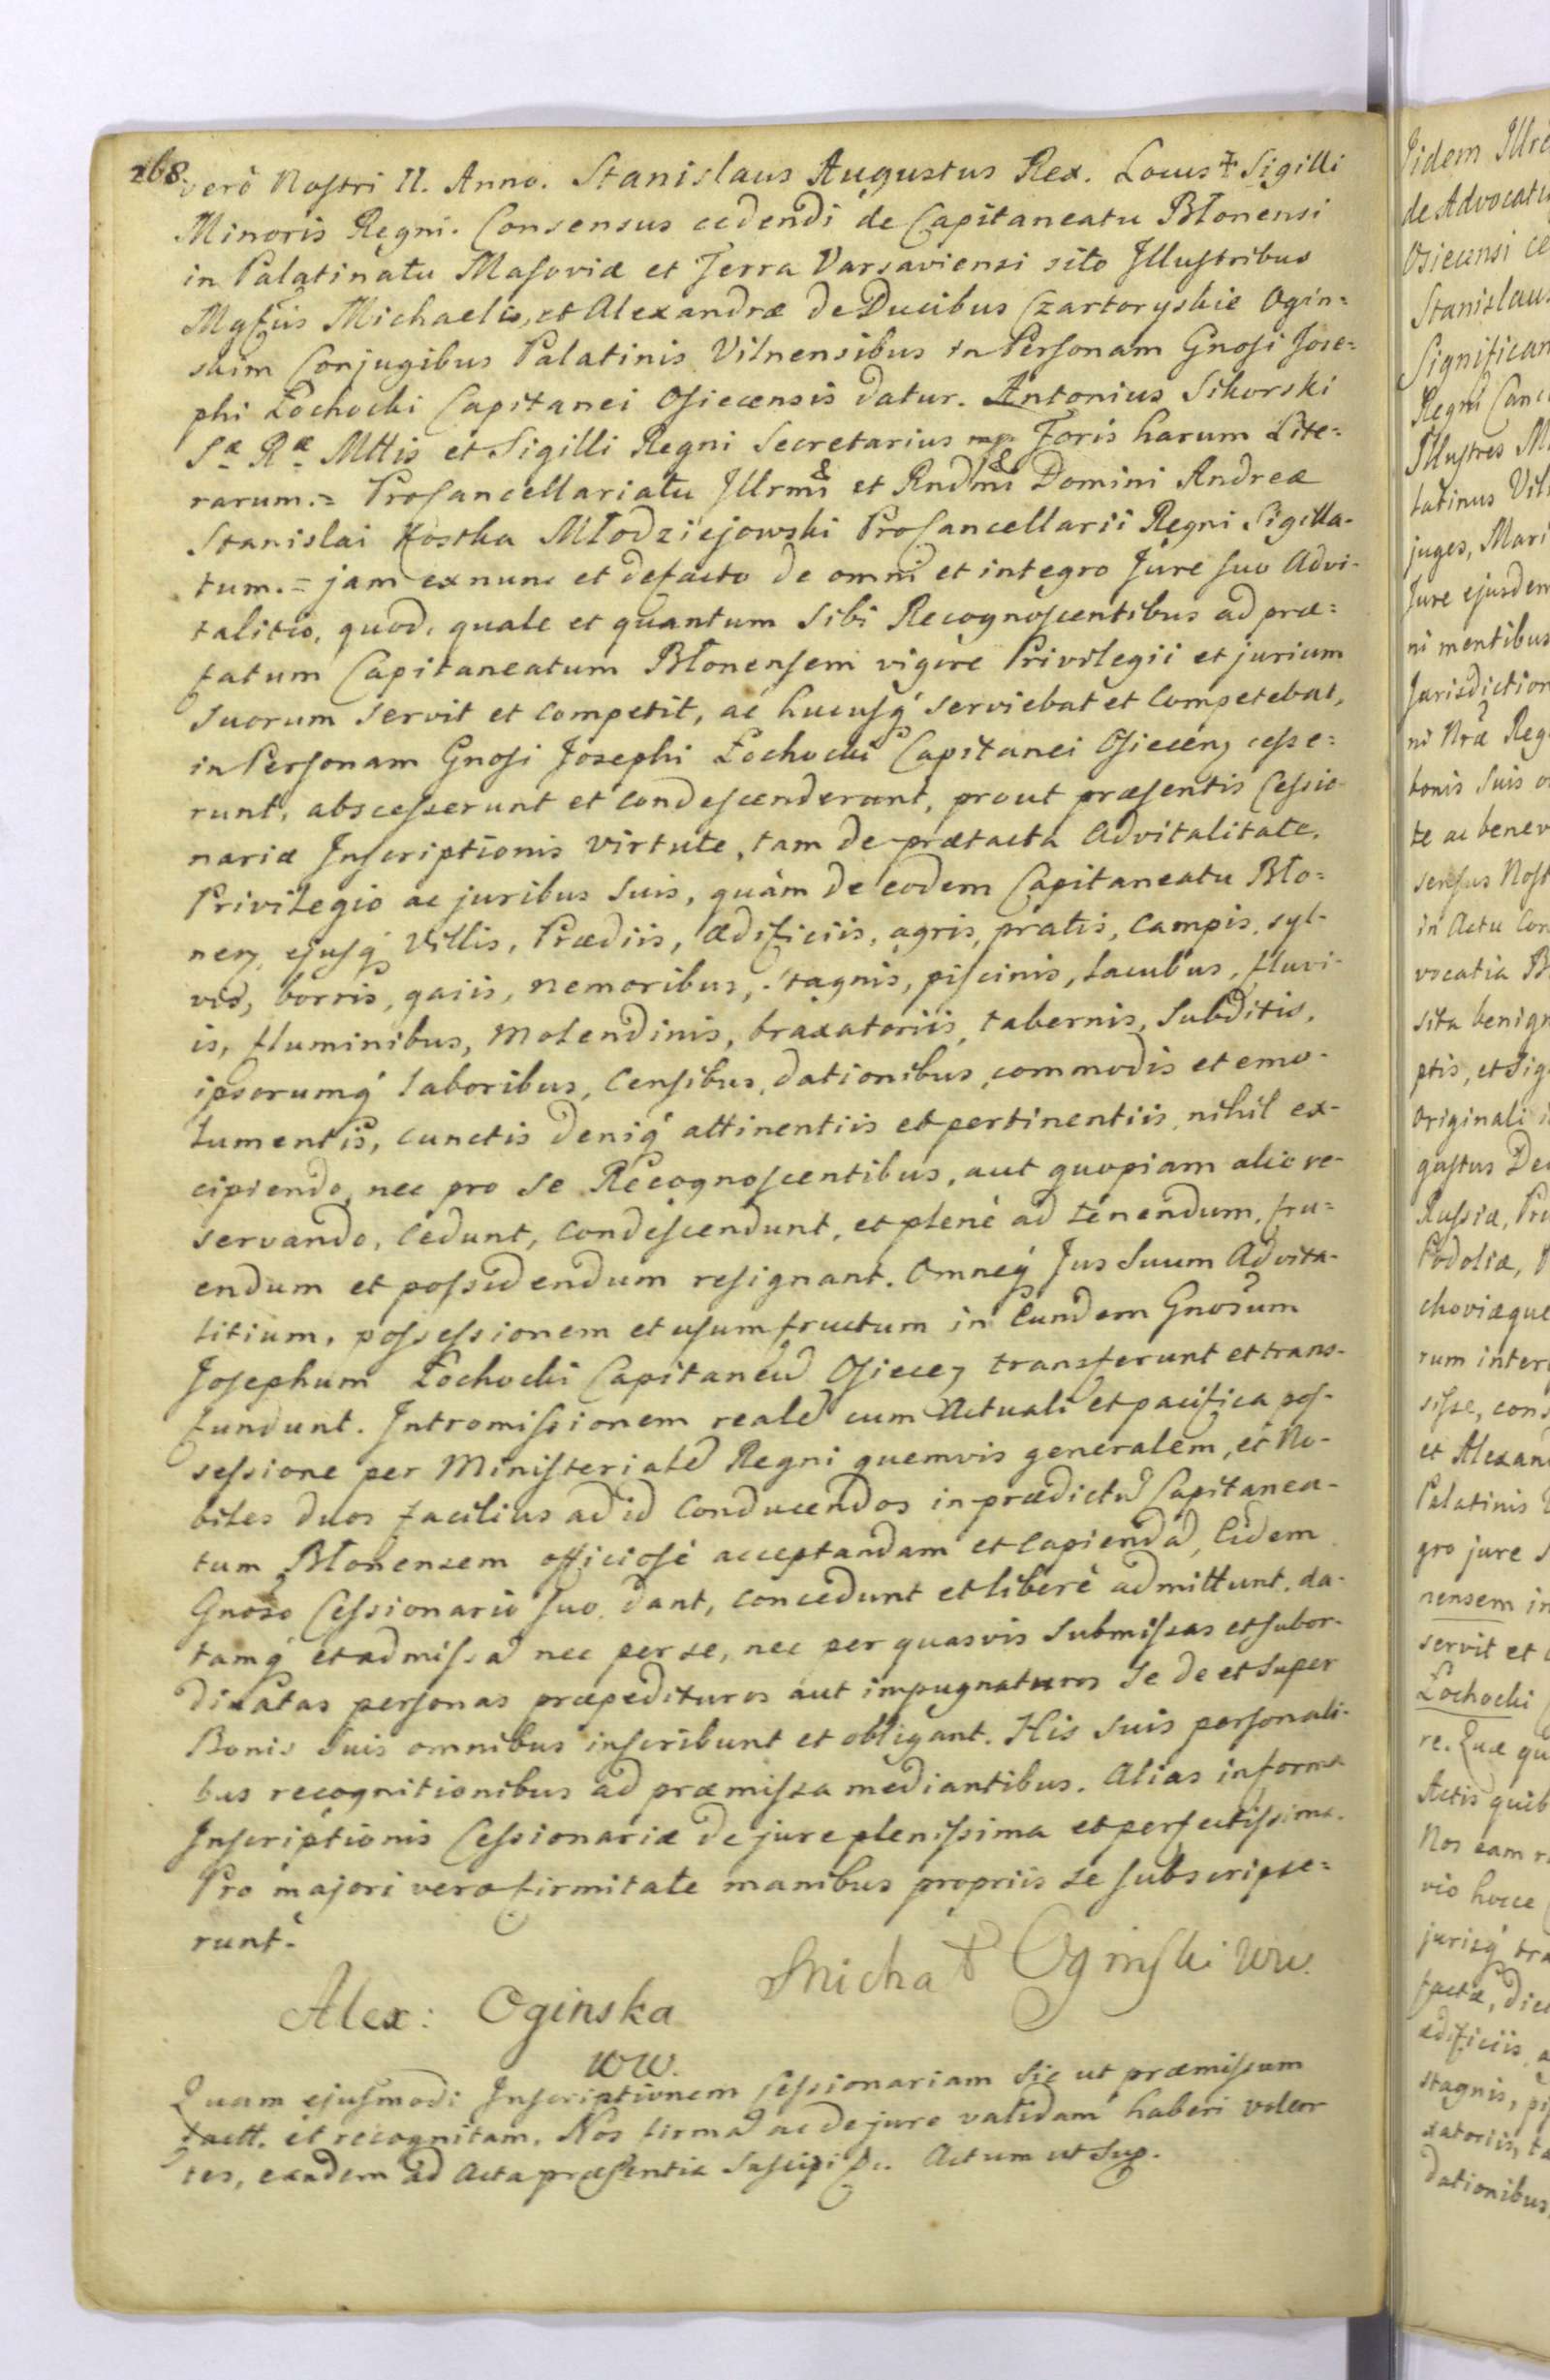 268.
verò Nostri II. Anno. Stanislaus Augustus Rex. Locus ✝ Sigilli
Minoris Regni. Consensus cedendi de Capitaneatu Błonensi
in Palatinatu Masoviæ et Terra Varsaviensi sito Illustribus
Mgfcis Michaelis, et Alexandræ de Ducibus Czartoryskie Ogin=
skim Conjugibus Palatinis Vilnensibus in Personam Gnosi Jose=
phi Łochocki Capitanei Osiecensis datur. Antonius Sikorski
Sæ Ræ Mttis et Sigilli Regni Secretarius mp. Foris harum Lite=
rarum.= ProCancellariatu Illrmi et Rndmi Domini Andreæ
Stanislai Kostka Młodziejowski ProCancellarii Regni Sigilla-
tum.= jam ex nunc et defacto de omni et integro Jure suo Advi-
talitio, quod, quale et quantum Sibi Recognoscentibus ad præ=
fatum Capitaneatum Błonensem vigore Privilegii et jurium
suorum servit et competit, ac hucusq́ serviebat et competebat,
in Personam Gnosi Josephi Łochocki Capitanei Osiecen; cesse=
runt, abscesserunt et condescenderunt, prout præsentis Cessio-
nariæ Inscriptionis virtute, tam de prætacta Advitalitate,
Privilegio ac juribus suis, quàm de eodem Capitaneatu Bło=
nen; ejusq́ Villis, Prædiis, ædificiis, agris, pratis, campis, syl-
vis, borris, gaiis, nemoribus, stagnis, piscinis, lacubus, fluvi-
is, fluminibus, molendinis, braxatoriis, tabernis, Subditis,
ipsorumq́ laboribus, Censibus, dationibus, commodis et emo-
lumentis, cunctis deniq́ attinentiis et pertinentiis, nihil ex-
cipiendo, nec pro se Recognoscentibus, aut quopiam alio re-
servando, cedunt, condescendunt, et plenè ad tenendum, fru=
endum et possidendum resignant. Omneq́ Jus Suum Advita-
litium, possessionem et usumfructum in Eundem Gnosum
Josephum Łochocki Capitaneu Osiece; transferunt et trans-
fundunt. Intromissionem reale cum Actuali et pacifica pos-
sessione per Ministeriale Regni quemvis generalem, et No-
biles duos facilius ad id conducendos in prædictu Capitanea-
tum Błonensem officiosè acceptandam et capienda, Eidem
Gnoso Cessionario suo dant, concedunt et liberè admittunt, da-
tamq́ et admissa nec per se, nec per quasvis submissas et subor-
dinatas personas præpedituros aut impugnaturos se de et super
Bonis Suis omnibus inscribunt et obligant. His suis personali-
bus recognitionibus ad præmissa mediantibus. Alias in forma
Inscriptionis Cessionariæ de jure plenissima et perfectissima.
Pro majori vero firmitate manibus propriis se subscripse=
runt.
Michał Ogiński WW.
Alex: Oginska
WW.
Quam ejusmodi Inscriptionem Cessionariam Sic ut præmissum
factt. et recognitam, Nos firma ac de jure validam haberi volen
tes, eandem ad Acta præsentia Suscipi &c. Actum ut Sup.
Iidem Illre
de Advocatia
Osiecensi ce
Stanislaus
Significam
Regni Canc
Illustres M
latinus Vil
juges, Mari
Jure ejusdem
ni mentibus
Jurisdiction
ni Nræ Reg
bonis Suis o
te ac benev
sensus Nost
in Actu Con
vocatia B
sita benign
ptis, et Sig
originali i
gustus De
Russiæ, Pru
Podoliæ, P
choviæque
rum inter
sisse, cons
et Alexan
Palatinis
gro jure S
nensem in
servit et c
Łochocki
re. Quæ qu
Actis quib
Nos eam r
vio hocce
jurisq́ tra
factæ, dic
ædificiis, a
stagnis, pis
xatoriis, ta
dationibus,